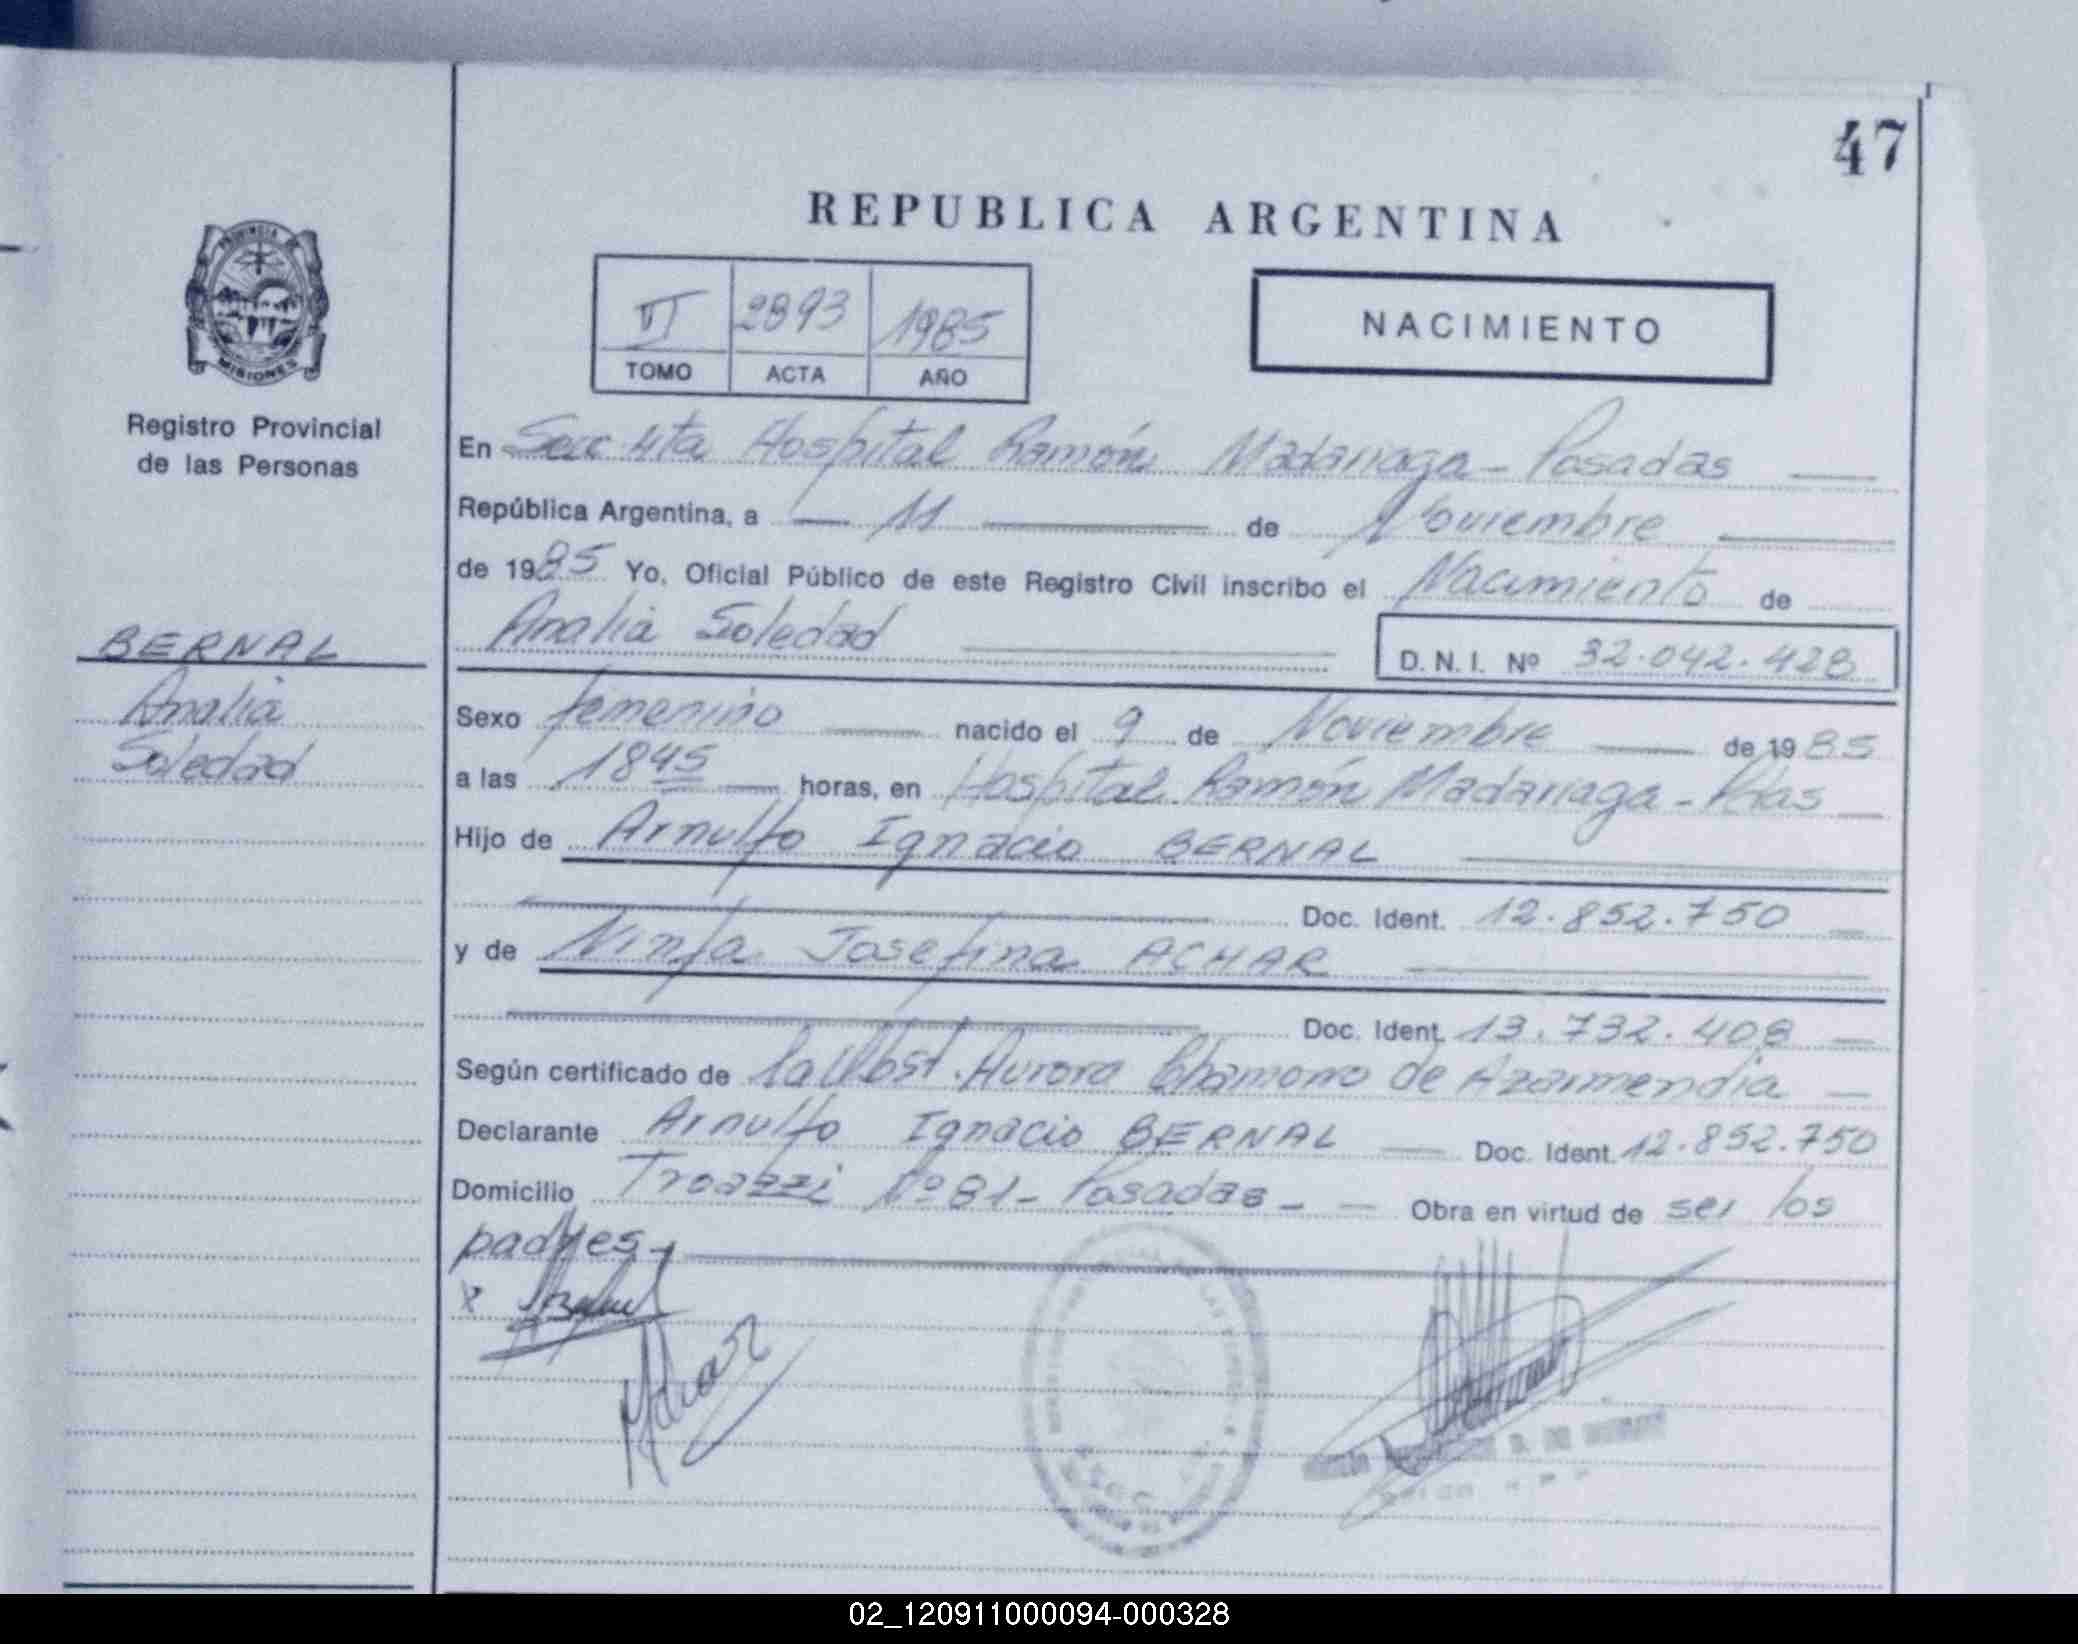 47
REPUBLICA ARGENTINA
PROVINCIA DE
MISIONES
VI 2893 1985
TOMO ACTA AÑO
NACIMIENTO
Registro Provincial
de las Personas
BERNAL
Analia
Soledad
En Secc 4ta Hospital Ramón Madariaga - Posadas
República Argentina, a 11 de Noviembre
de 1985 Yo, Oficial Público de este Registro Civil inscribo el Nacimiento de
Analia Soledad
D.N.I. Nº 32.042.428
Sexo femenino nacido el 9 de Noviembre de 1985
a las 1845 horas, en Hospital Ramón Madariaga - Pdas
Hijo de Arnulfo Ignacio BERNAL
Doc. Ident. 12.852.750
y de Ninfa Josefina ACHAR
Doc. Ident. 13.732.408
Según certificado de la Obst. Aurora Chamorro de Azarmendia
Declarante Arnulfo Ignacio BERNAL Doc. Ident. 12.852.750
Domicilio Troazzi Nº 81 - Posadas - Obra en virtud de ser los
padres
x
02_120911000094-000328